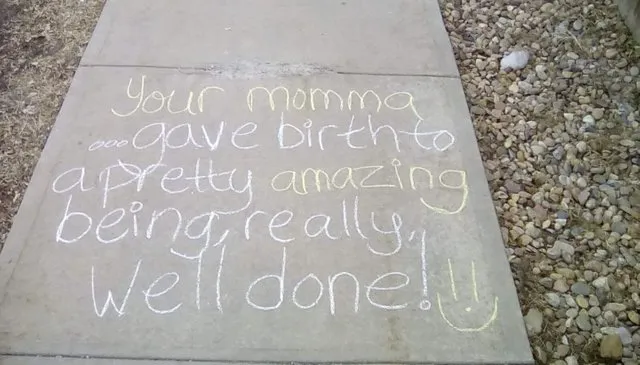 Your momma
...gave birth to
a pretty amazing
being, really,
Well done!